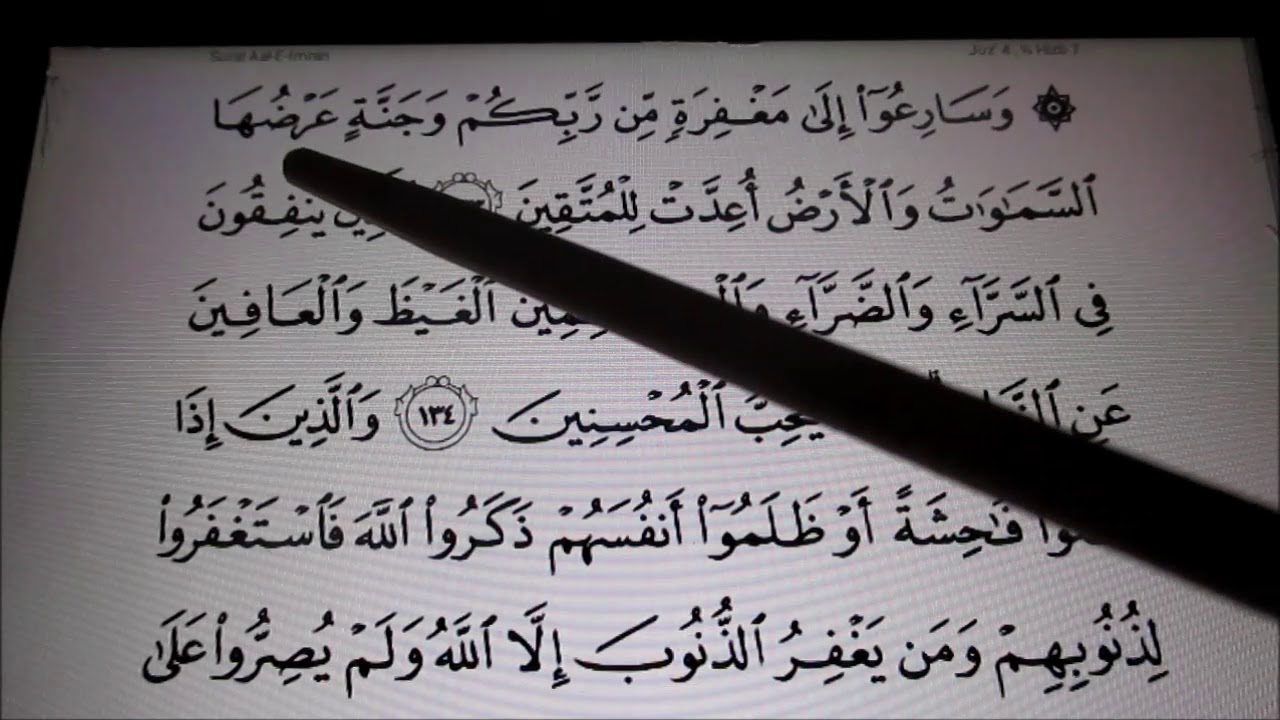 Surat Aal-E-Imran Juz' 4, ¼ Hizb 7
۞ وَسَارِعُوٓا۟ إِلَىٰ مَغْفِرَةٍ مِّن رَّبِّكُمْ وَجَنَّةٍ عَرْضُهَا
ٱلسَّمَٰوَٰتُ وَٱلْأَرْضُ أُعِدَّتْ لِلْمُتَّقِينَ يُنفِقُونَ
فِى ٱلسَّرَّآءِ وَٱلضَّرَّآءِ ٱلْغَيْظَ وَٱلْعَافِينَ
عَنِ يُحِبُّ ٱلْمُحْسِنِينَ ١٣٤ وَٱلَّذِينَ إِذَا
فَٰحِشَةً أَوْ ظَلَمُوٓا۟ أَنفُسَهُمْ ذَكَرُوا۟ ٱللَّهَ فَٱسْتَغْفَرُوا۟
لِذُنُوبِهِمْ وَمَن يَغْفِرُ ٱلذُّنُوبَ إِلَّا ٱللَّهُ وَلَمْ يُصِرُّوا۟ عَلَىٰ